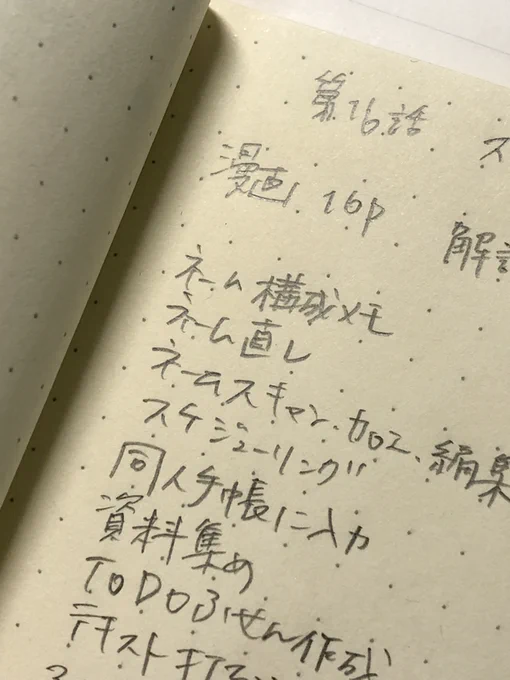 第16話 ス
漫画 16p 解説
ネーム構成メモ
ネーム直し
ネームスキャン、加工、編集
スケジューリング
同人手帳に入力
資料集め
ToDoふせん作成
テキスト